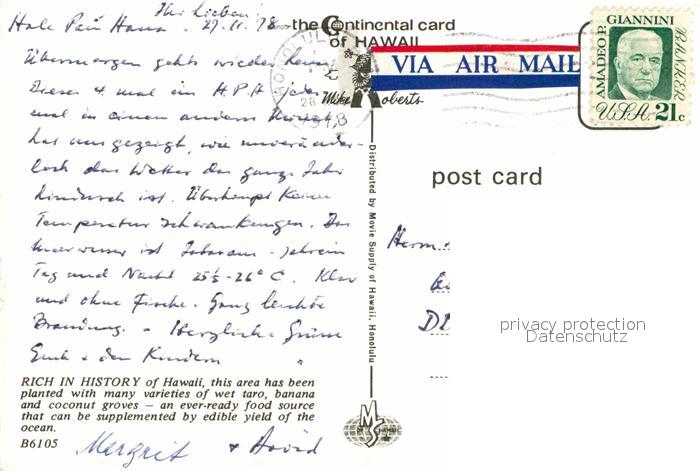 Ihr Lieben!
Hale Pau Hana. 27.11.78
Übermorgen geht's wieder heim
Dieses 4. mal in H.P.H jedes
mal in einem anderen Monat
hat uns gezeigt, wie unveränder-
lich das Wetter das ganze Jahr
hindurch ist. Überhaupt keine
Temperatur Schwankungen. Das
Meerwasser ist Jahraus - Jahrein
Tag und Nacht 25½-26° C. Klar
und ohne Fische. Ganz leichte
Brandung. Herzliche Grüsse
Euch + den Kindern
RICH IN HISTORY of Hawaii, this area has been
planted with many varieties of wet taro, banana
and coconut groves — an ever-ready food source
that can be supplemented by edible yield of the
ocean.
B6105
Margrit + David
the Continental card
of HAWAII
Mike Roberts
HONOLULU
28
1978
VIA AIR MAIL
AMADEO P. GIANNINI
BANKER
USA 21c
Distributed by Movie Supply of Hawaii, Honolulu
MS
post card
Herrn
privacy protection
Datenschutz